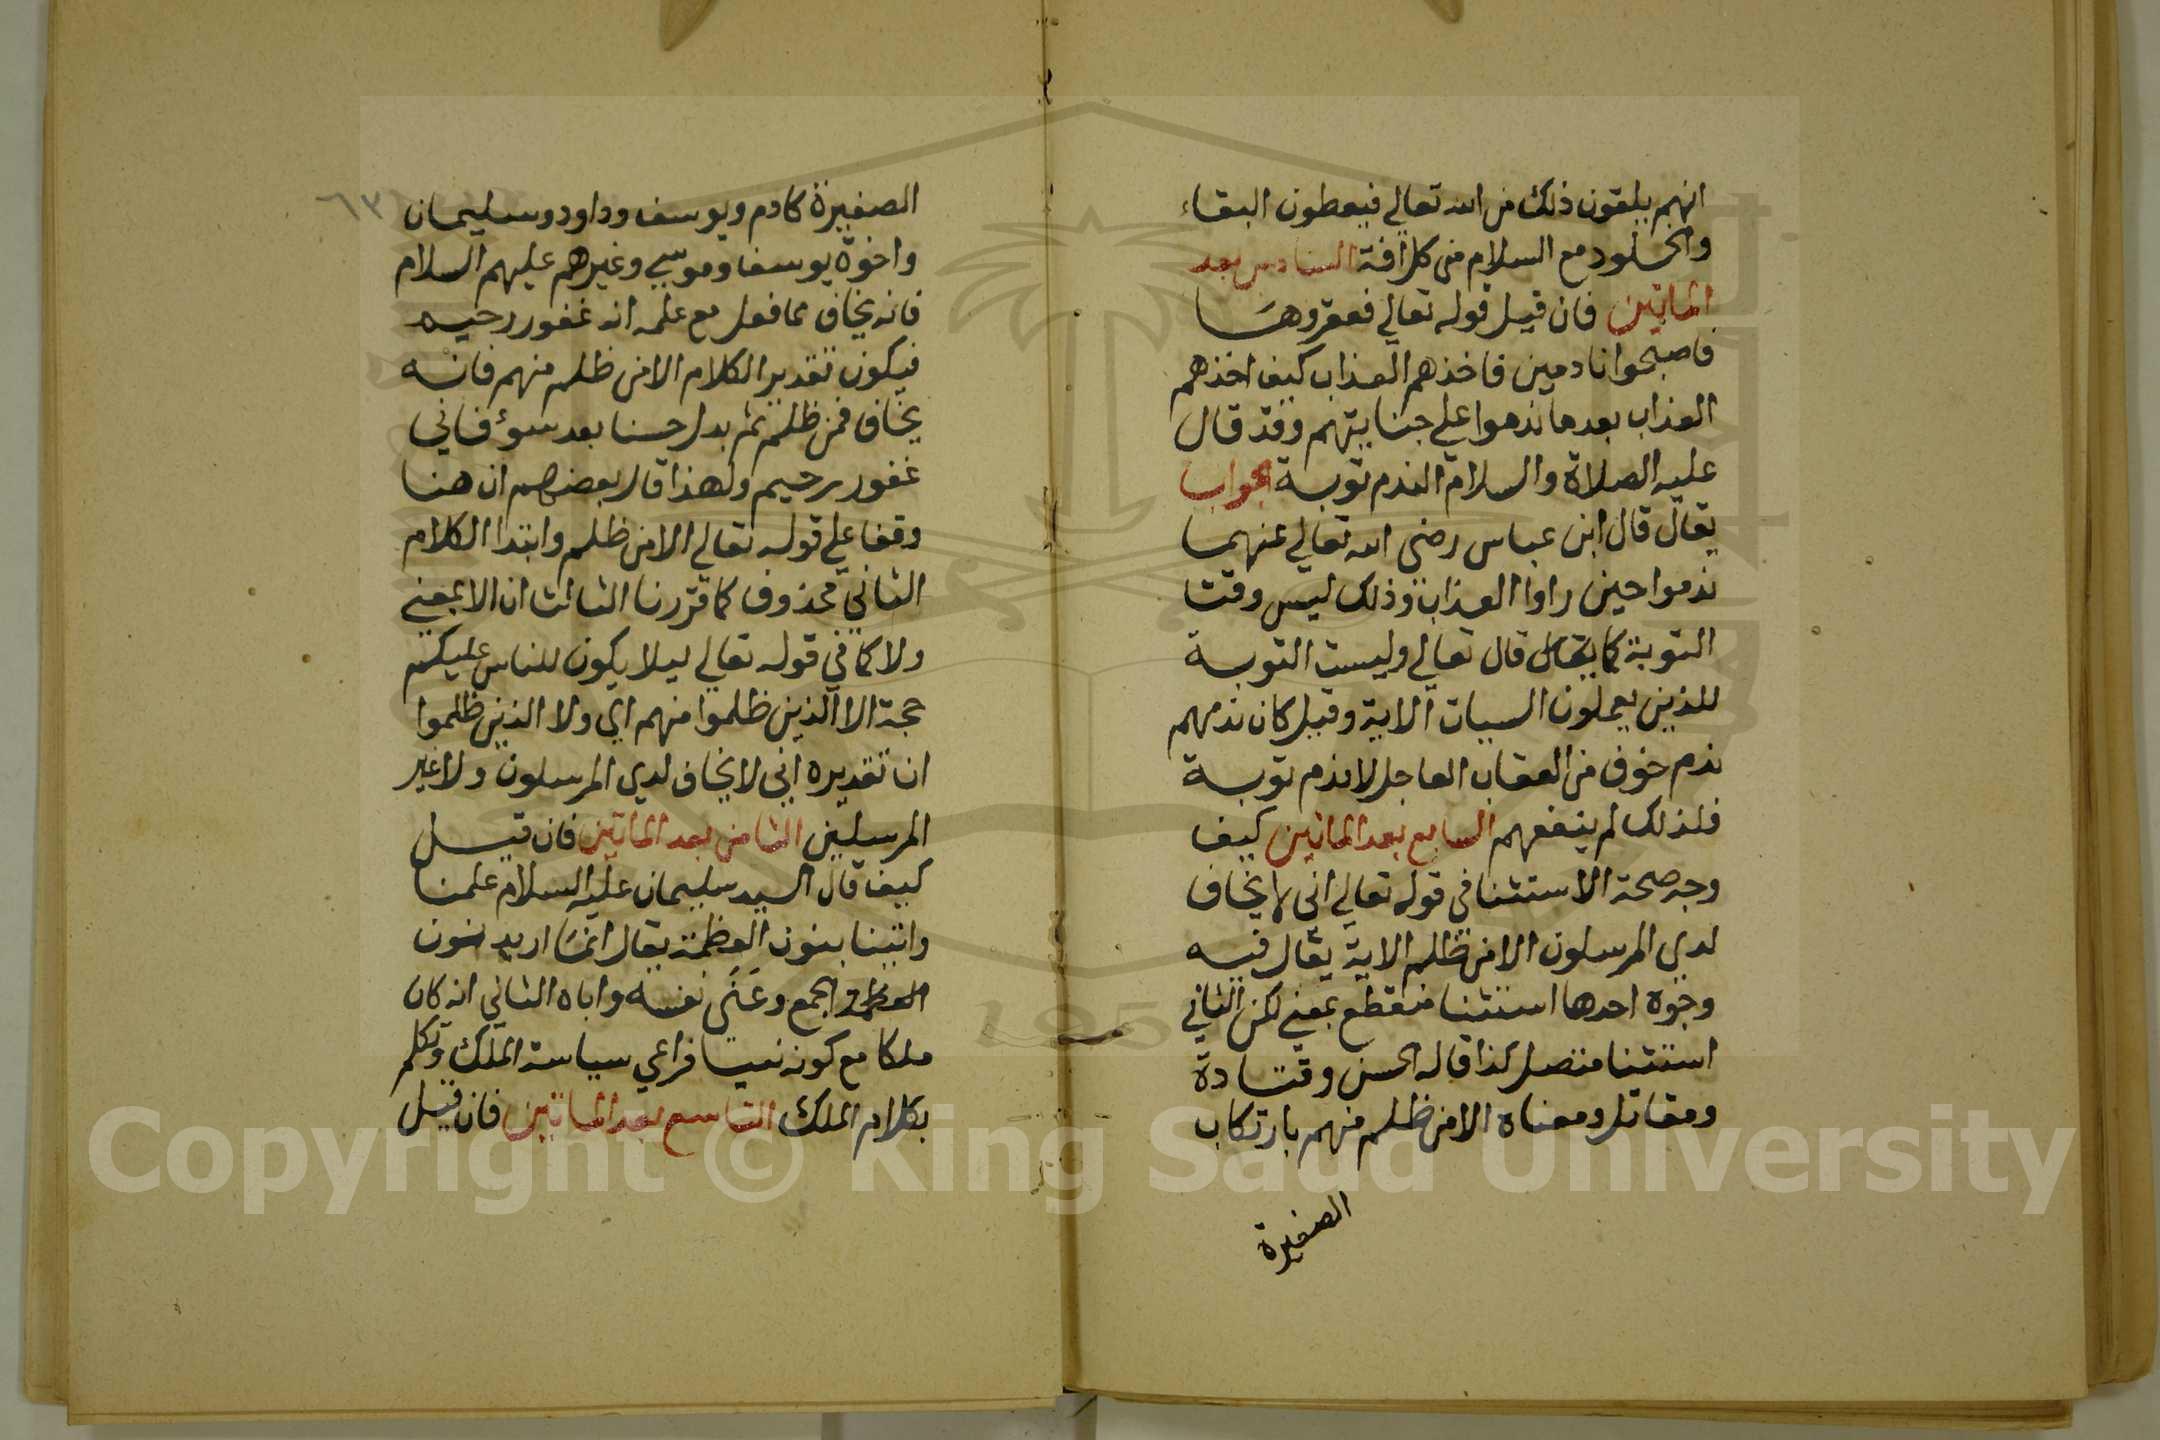 انهم يلقون ذلك من الله تعالي فيعطون البقاء
والخلود مع السلام من كل افة السادس بعد
المايتين فان قيل قوله تعالي فعقروها
فاصبحوا نادمين فاخذهم العذاب كيف اخذهم
العذاب بعد ما ندموا علي جنايتهم وقد قال
عليه الصلاة والسلام الندم توبة الجواب
يقال قال ابن عباس رضى الله تعالي عنهما
ندموا حين راوا العذاب وذلك ليس وقت
التوبة كما يقال قال تعالي وليست التوبة
للذين يعملون السيات الاية وقيل كان ندمهم
ندم خوف من العقاب العاجل لا ندم توبة
فلذلك لم ينفعهم السابع بعد المايتين كيف
وجه صحة الاستثنا في قوله تعالي انى لا يخاف
لدي المرسلون الا من ظلم الاية يقال فيه
وجوه احدها استثنا منقطع بمعني لكن الثاني
استثنا متصل كذا قاله الحسن وقتادة
ومقاتل ومعناه الا من ظلم منهم بارتكاب
الصغيرة
٦٣
الصغيرة كادم ويوسف وداود وسليمان
واخوة يوسف وموسي وغيرهم عليهم السلام
فانه يخاف مما فعل مع علمه انه غفور رحيم
فيكون تقدير الكلام الا من ظلم منهم فانه
يخاف فمن ظلم ثم بدل حسنا بعد سوء فاني
غفور رحيم ولهذا قال بعضهم ان هنا
وقفا علي قوله تعالي الا من ظلم وابتدا الكلام
الثاني محذوف كما قررنا الثالث ان الا بمعني
ولا كما في قوله تعالي ليلا يكون للناس عليكم
حجة الا الذين ظلموا منهم اي ولا الذين ظلموا
ان تقديره اني لا يخاف لدي المرسلون ولا غير
المرسلين الثامن بعد المايتين فان قيل
كيف قال السيد سليمان عليه السلام علمنا
واتينا بنون العظمة يقال انما اريد بنون
العظمة الجمع وعنى نفسه واباه الثاني انه كان
ملكا مع كونه نبيا فراعي سياسة الملك وتكلم
بكلام الملك التاسع بعد المايتين فان قيل
Copyright © King Saud University
195